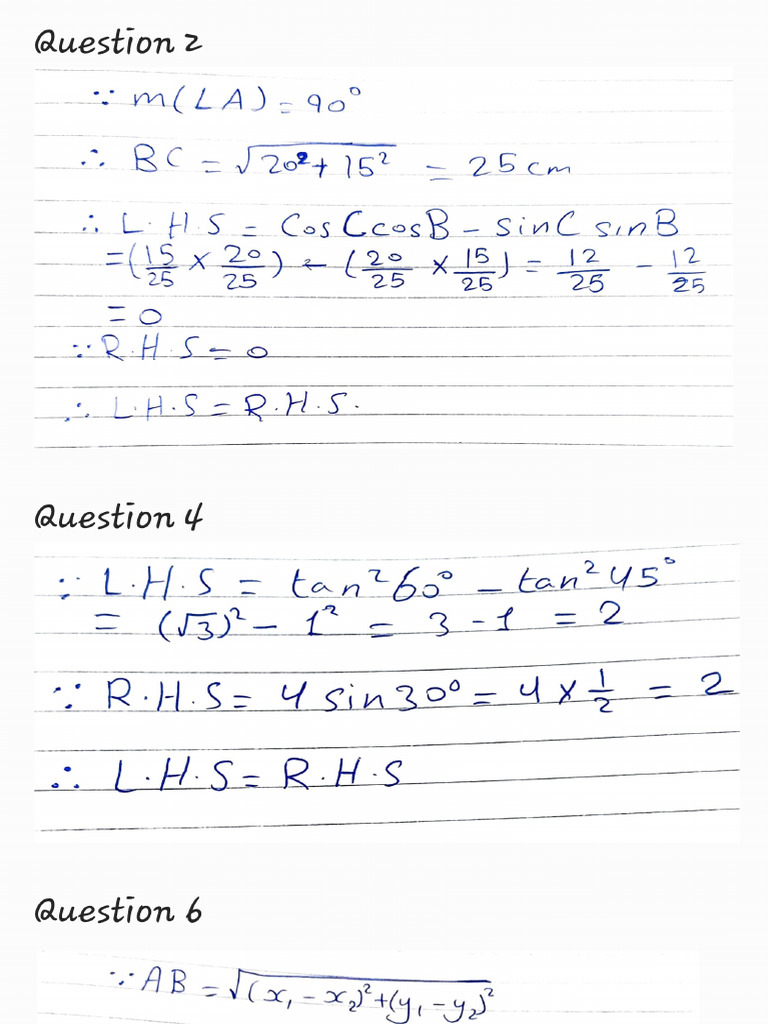 Question 2
∵ m(∠A) = 90°
∴ BC = √(20² + 15²) = 25 cm
∴ L.H.S = Cos C cos B - sin C sin B
= (15/25 × 20/25) - (20/25 × 15/25) = 12/25 - 12/25
= 0
∵ R.H.S = 0
∴ L.H.S = R.H.S.
Question 4
∵ L.H.S = tan² 60° - tan² 45°
= (√3)² - 1² = 3 - 1 = 2
∵ R.H.S = 4 sin 30° = 4 × 1/2 = 2
∴ L.H.S = R.H.S
Question 6
∵ AB = √((x₁ - x₂)² + (y₁ - y₂)²)